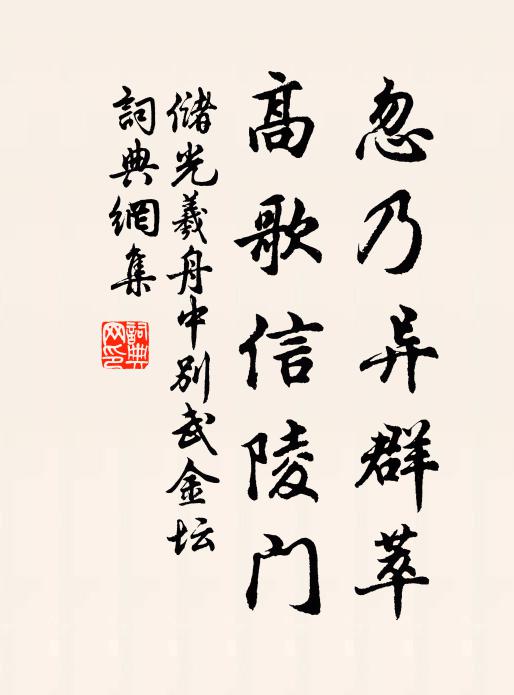 忽乃异群萃
高歌信陵门
儲光羲舟中别武金坛
詞典網集
詞典
网印